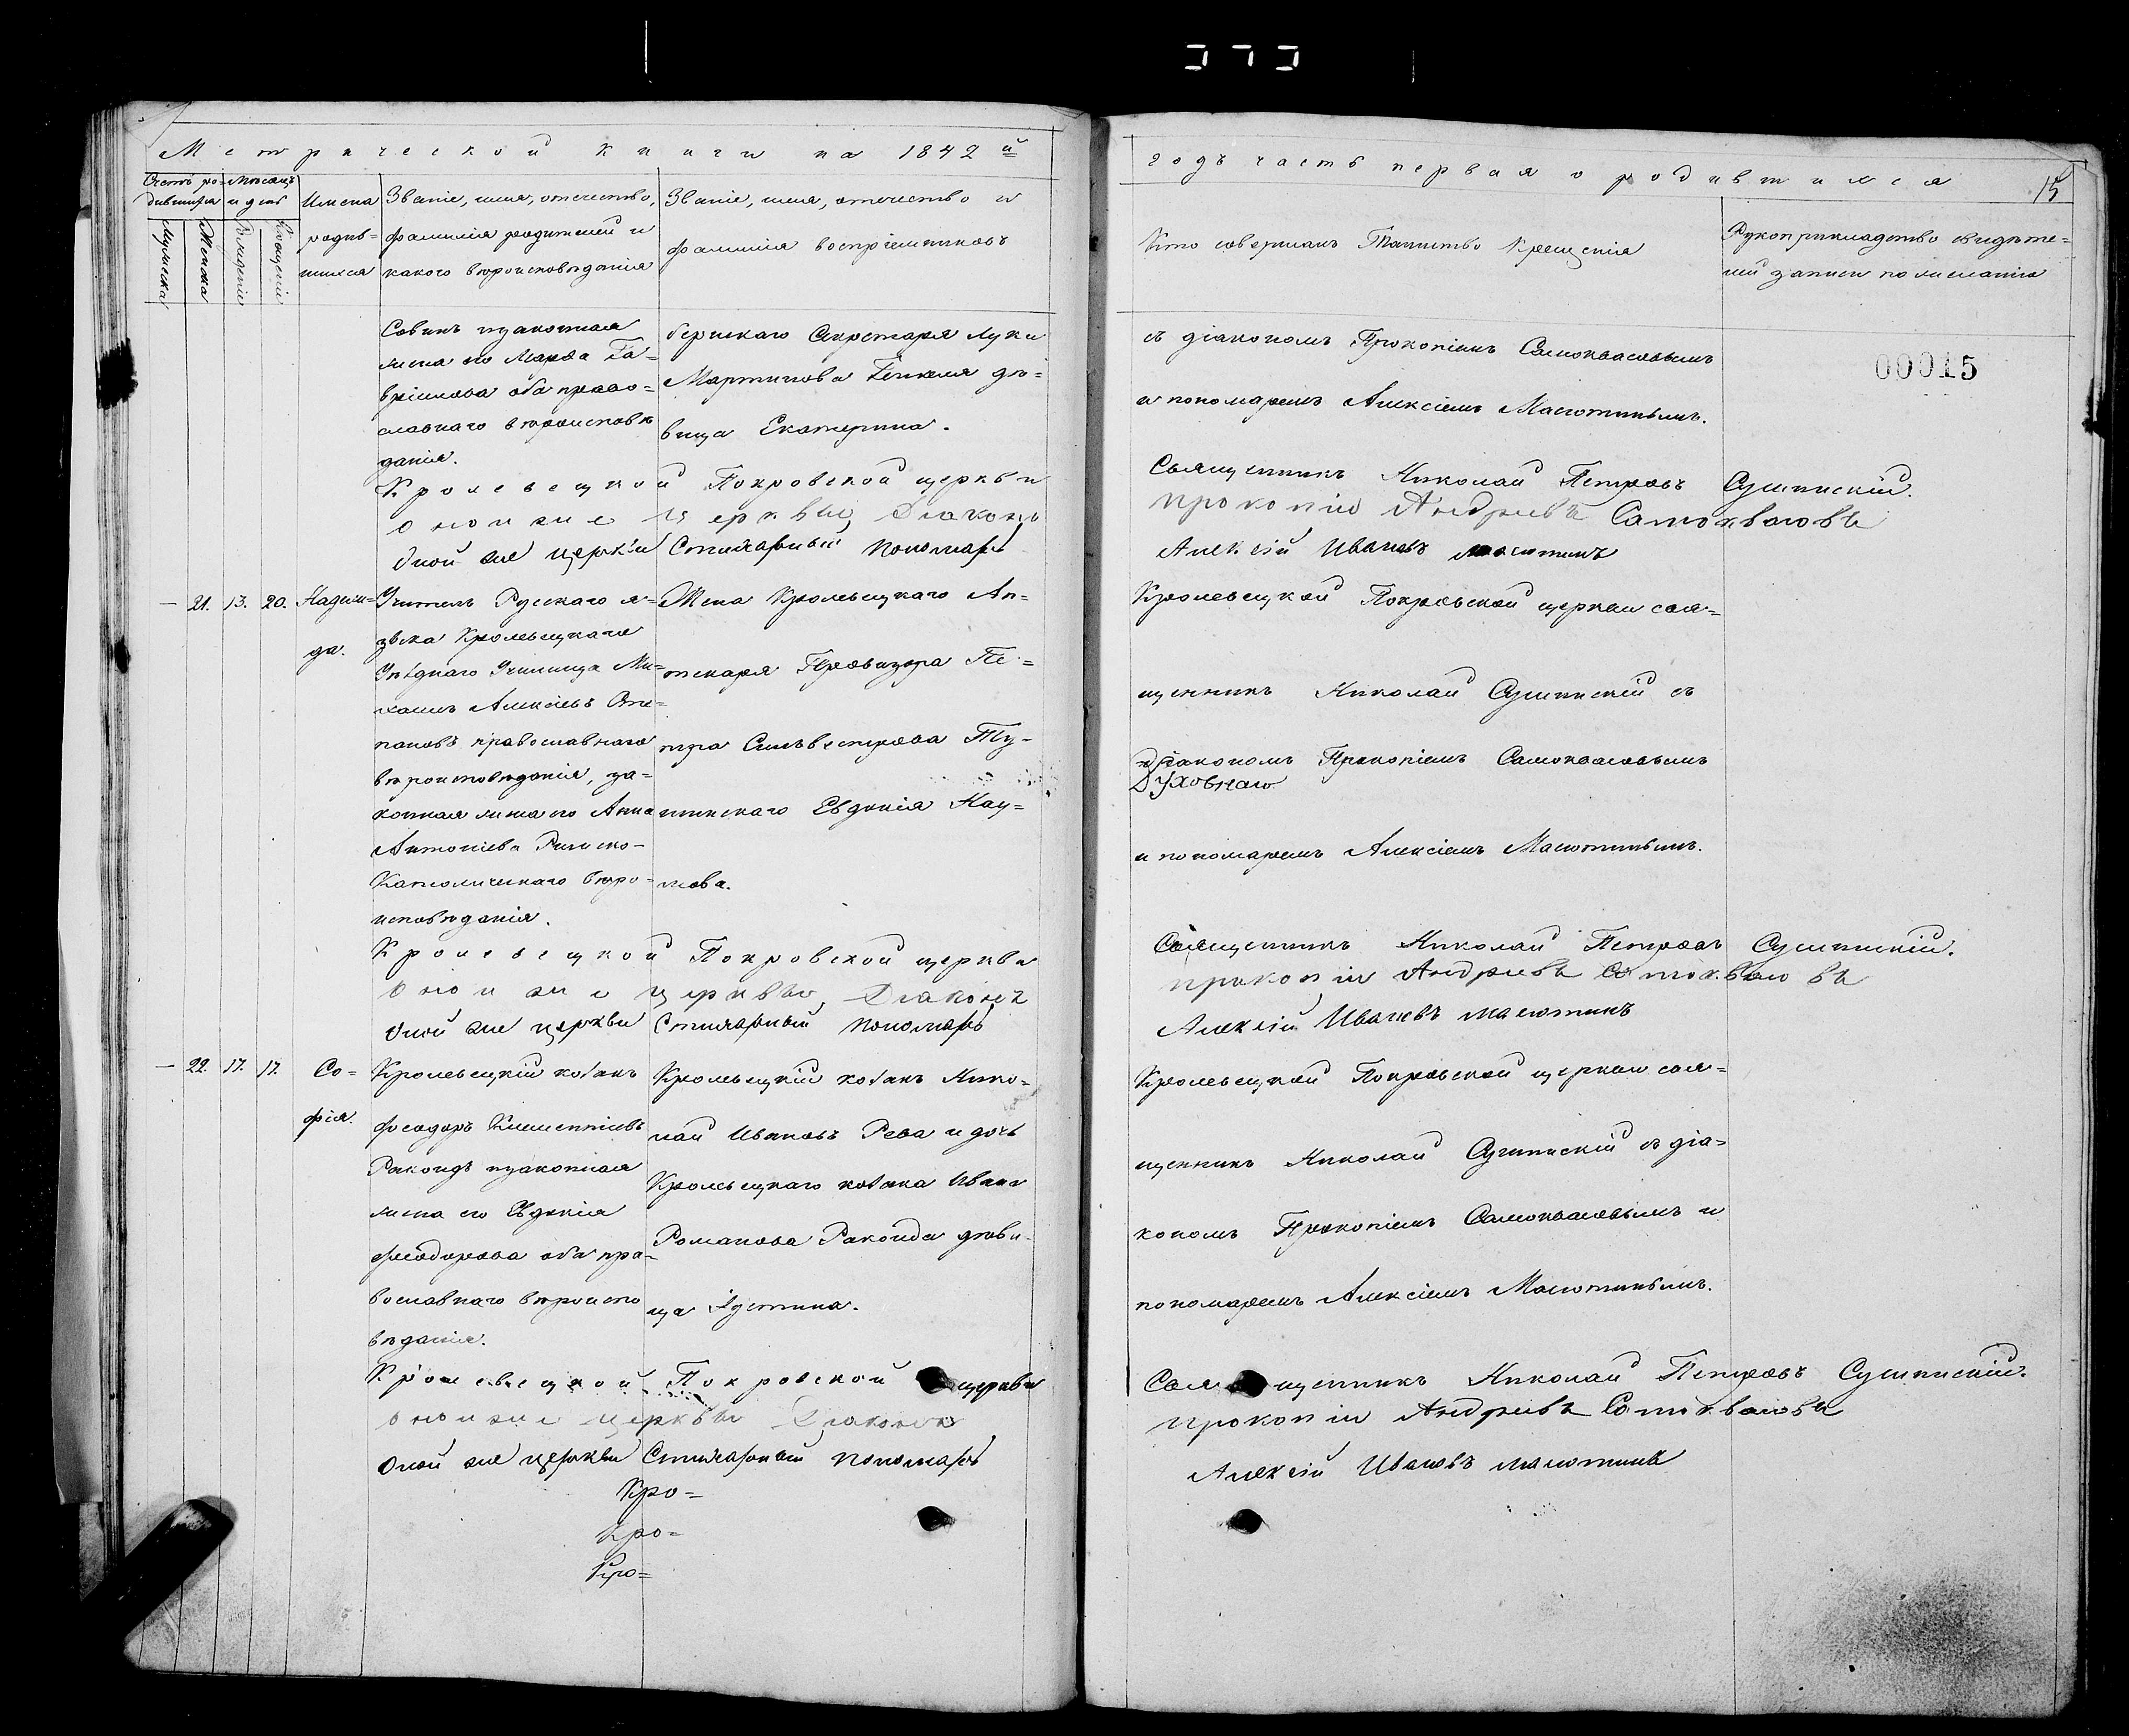 Метрической книги на 1842й
годъ часть первая о родившихся
15
Счетъ ро- Мѣсяцъ
дившихся и день
Мужеска
Женска
Рожденія
Крещенія
Имена
родив-
шихся
Званіе, имя, отчество,
фамилія родителей и
какого вѣроисповѣданія
Званіе, имя, отчество и
фамилія воспріемниковъ
Кто совершалъ Таинство Крещенія
Рукоприкладство свидѣте=
лей записи по желанію
00015
законная
жена его Марѳа Га=
вріилова оба право=
славнаго вѣроисповѣ
данія.
бернскаго Секретаря Луки
Мартинова дѣ=
вица Екатерина.
съ діакономъ Прокопіемъ Самоквасовымъ
и пономаремъ Алексіемъ Масютинымъ.
Кролевецкой Покровской церкви Священникъ Николай Петровъ Сушинскій.
оной же церквы Діаконъ прокопій Андріевъ Самоквасовъ
Оной же церкви Стихарный пономарь Алексій Ивановъ Масютинъ
— 21. 13. 20.
Надеж=
да.
Учитель Русскаго я-
зыка Кролевецкаго
Уѣзднаго Училища Ми=
хаилъ Алексіевъ Сте=
пановъ православнаго
вѣроисповѣданія, за=
конная жена его Анна
Антоніева Римско-
Католическаго вѣро-
исповѣданія.
Жена Кролевецкаго Ап=
текаря Провизора Пе=
тра Сильвестрова Ту-
шинскаго Евдокія Нау=
мова.
Кролевецкой Покровской церкви свя=
щенникъ Николай Сушинскій съ
діакономъ Прокопіемъ Самоквасовымъ
Духовнаго
и пономаремъ Алексіемъ Масютинымъ.
Кролевецкой Покровской церкви Священникъ Николай Петровъ Сушинскій.
оной же церквы, Діаконъ прокопій Андріевъ Самоквасовъ
Оной же церкви Стихарный пономарь Алексій Ивановъ Масютинъ
— 22. 17. 17.
Со=
фія.
Кролевецкій козакъ
Феодоръ Климентіевъ
Ракоидъ и законная
жена его Евдокія
Феодорова оба пра-
вославнаго вѣроиспо
вѣданія.
Кролевецкій козакъ Нико-
лай Ивановъ Рева и дочь
Кролевецкаго козака Ивана
Романова Ракоида дѣви-
ца Іустина.
Кролевецкой Покровской церкви свя=
щенникъ Николай Сушинскій съ діа=
кономъ Прокопіемъ Самоквасовымъ и
пономаремъ Алексіемъ Масютинымъ.
Кролевецкой Покровской церкви Священникъ Николай Петровъ Сушинскій.
оной же церквы Діаконъ прокопій Андріевъ Самоквасовъ
Оной же церкви Стихарный пономарь Алексій Ивановъ Масютинъ
Кро=
Кро=
Кро=